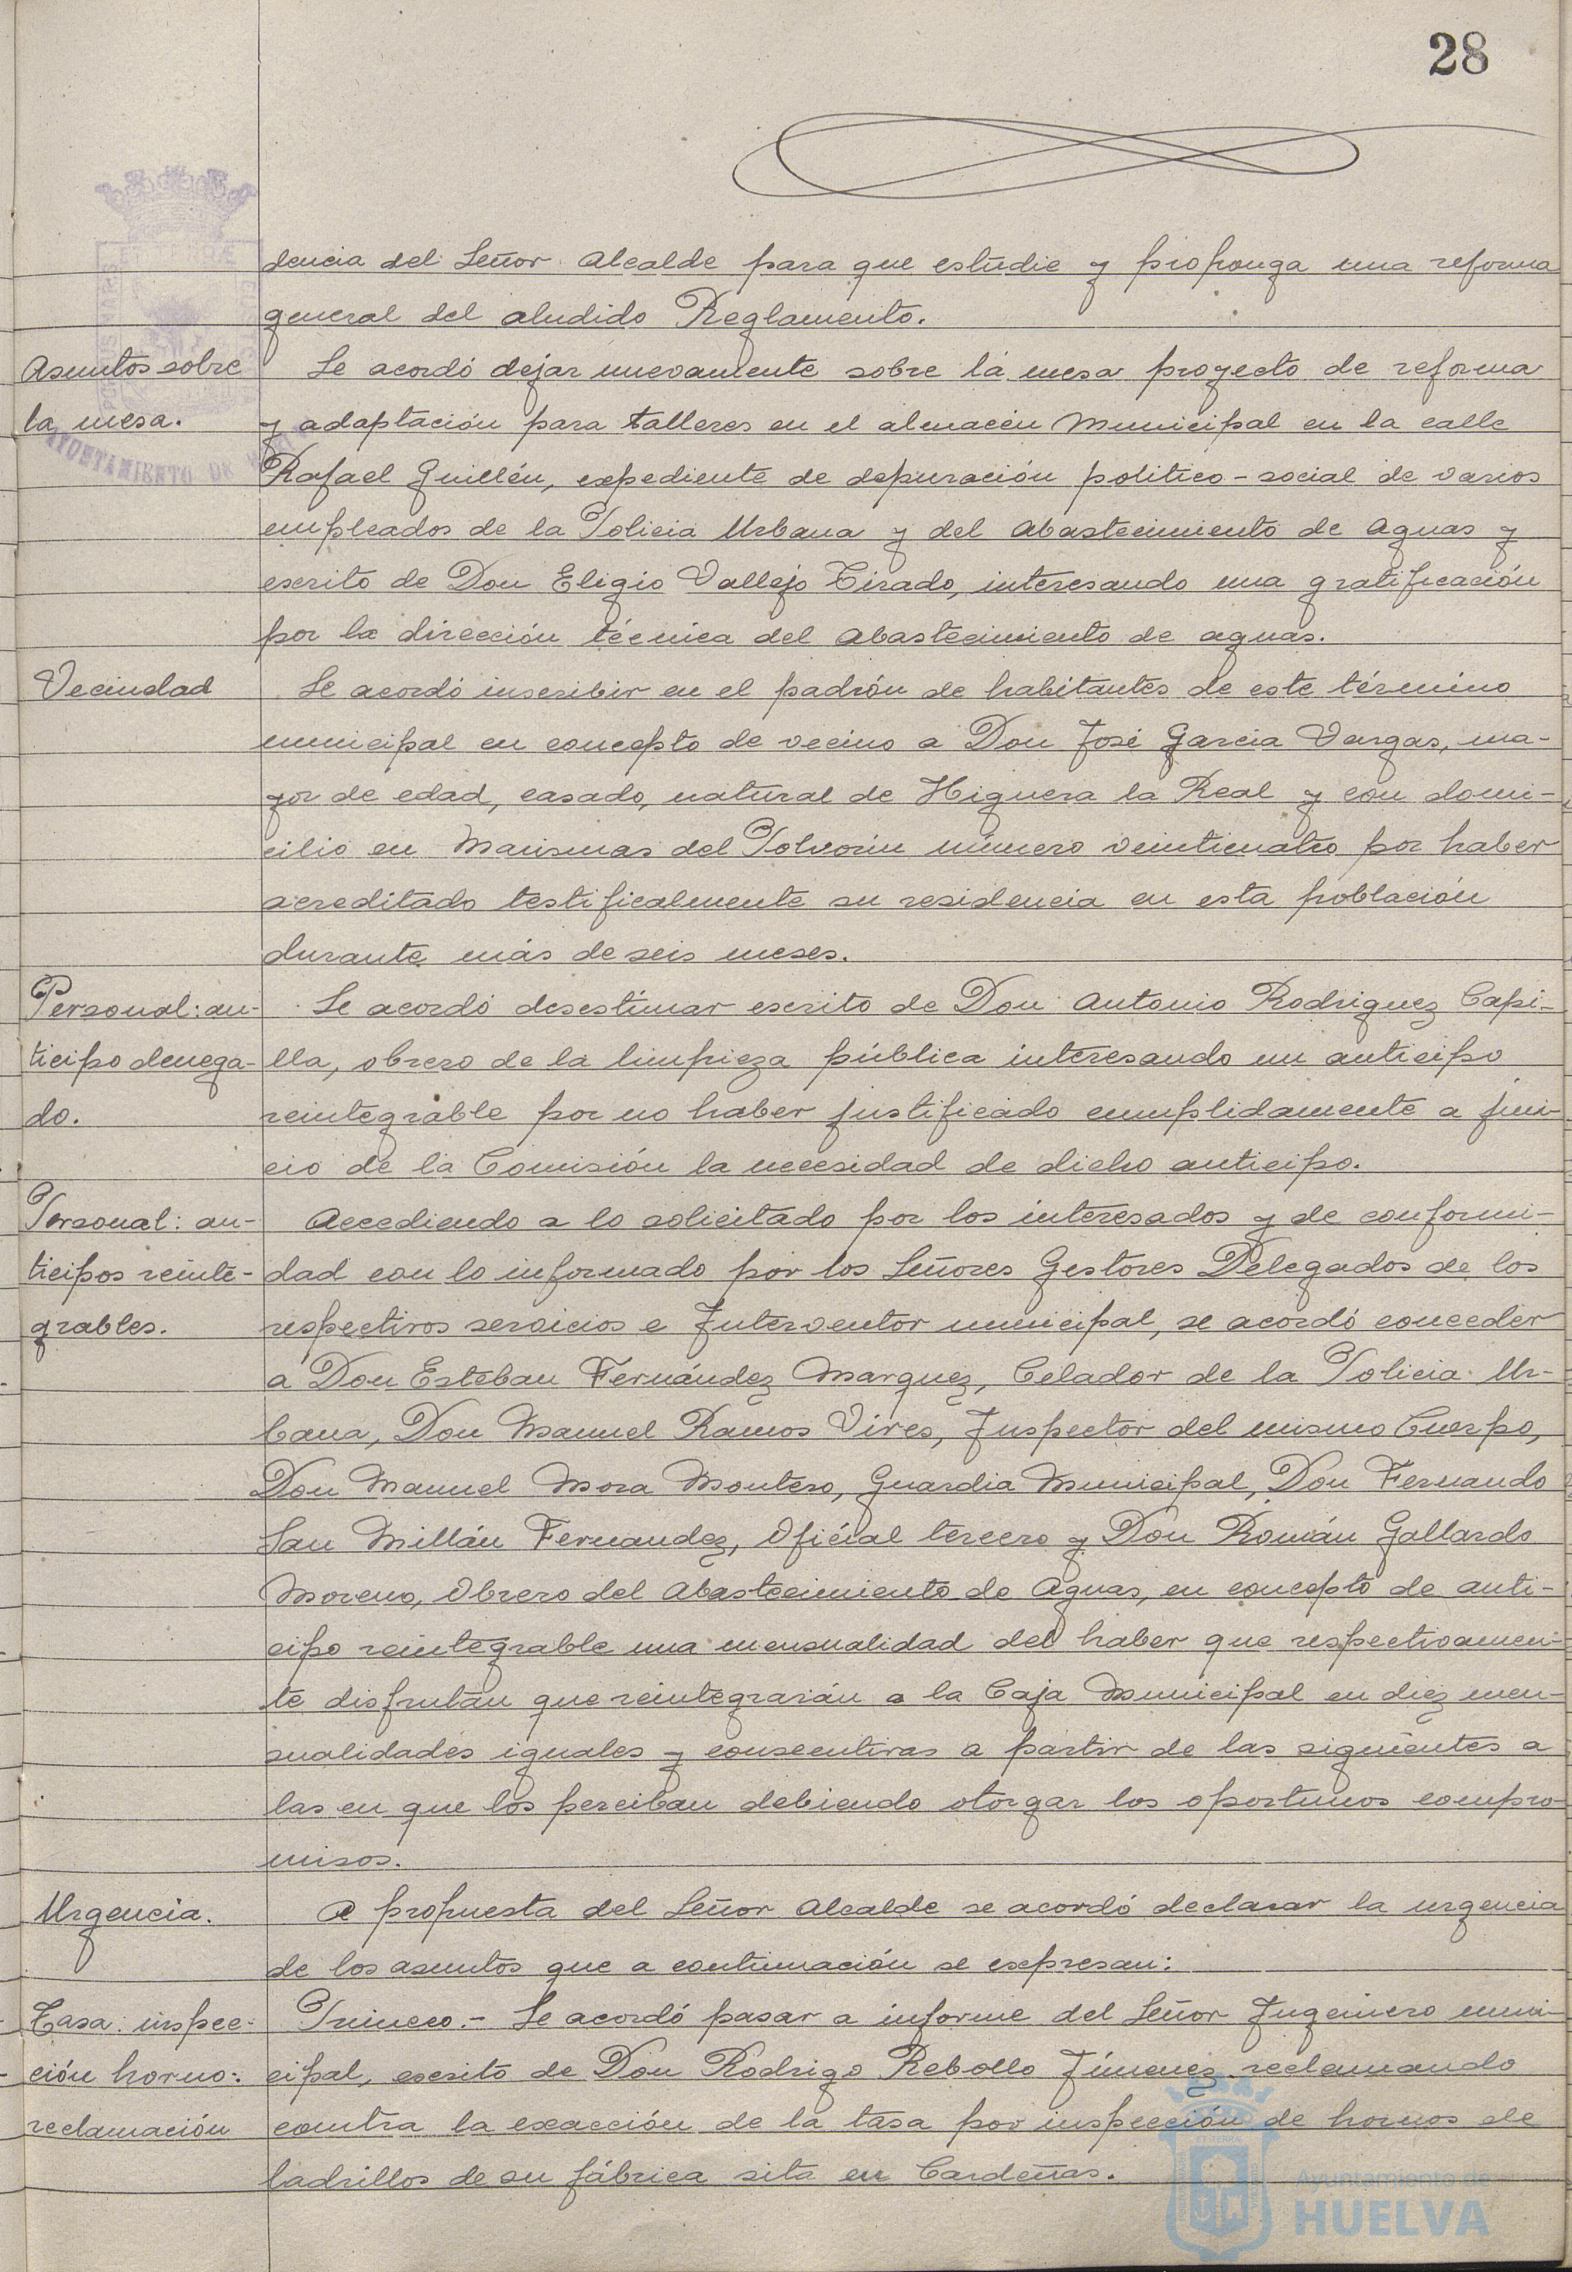 28
dencia del Señor Alcalde para que estudie y proponga una reforma
general del aludido Reglamento.
Asuntos sobre
la mesa.
Se acordó dejar nuevamente sobre la mesa proyecto de reforma
y adaptación para talleres en el almacén Municipal en la calle
Rafael Guillén, expediente de depuración politico-social de varios
empleados de la Policia Urbana y del Abastecimiento de Aguas y
escrito de Don Eligio Vallejo Tirado, interesando una gratificación
por la dirección técnica del Abastecimiento de aguas.
Vecindad
Se acordó inscribir en el padrón de habitantes de este término
municipal en concepto de vecino a Don José Garcia Vargas, ma-
yor de edad, casado, natural de Higuera la Real y con domi-
cilio en Marismas del Polvorín número veinticuatro por haber
acreditado testificalmente su residencia en esta población
durante más de seis meses.
Personal: an-
ticipo denega-
do.
Se acordó desestimar escrito de Don Antonio Rodriguez Capi-
lla, obrero de la limpieza pública interesando un anticipo
reintegrable por no haber justificado cumplidamente a jui-
cio de la Comisión la necesidad de dicho anticipo.
Personal: an-
ticipos reinte-
grables.
Accediendo a lo solicitado por los interesados y de conformi-
dad con lo informado por los Señores Gestores Delegados de los
respectivos servicios e Interventor municipal, se acordó conceder
a Don Esteban Fernández Marquez, Celador de la Policia Ur-
bana, Don Manuel Ramos Vires, Inspector del mismo Cuerpo,
Don Manuel Mora Montero, Guardia Municipal, Don Fernando
San Millán Fernandez, Oficial tercero y Don Román Gallardo
Moreno, Obrero del Abastecimiento de Aguas, en concepto de anti-
cipo reintegrable una mensualidad del haber que respectivamen-
te disfrutan que reintegrarán a la Caja Municipal en diez men-
sualidades iguales y consecutivas a partir de las siguientes a
las en que los perciban debiendo otorgar los oportunos compro-
misos.
Urgencia.
A propuesta del Señor Alcalde se acordó declarar la urgencia
de los asuntos que a continuación se expresan:
Tasa: inspec-
ción horno:
reclamación
Primero.- Se acordó pasar a informe del Señor Ingeniero muni-
cipal, escrito de Don Rodrigo Rebollo Jímenez reclamando
contra la exacción de la tasa por inspección de hornos de
ladrillos de su fábrica sita en Cardeñas.
AYUNTAMIENTO DE
Ayuntamiento de
HUELVA